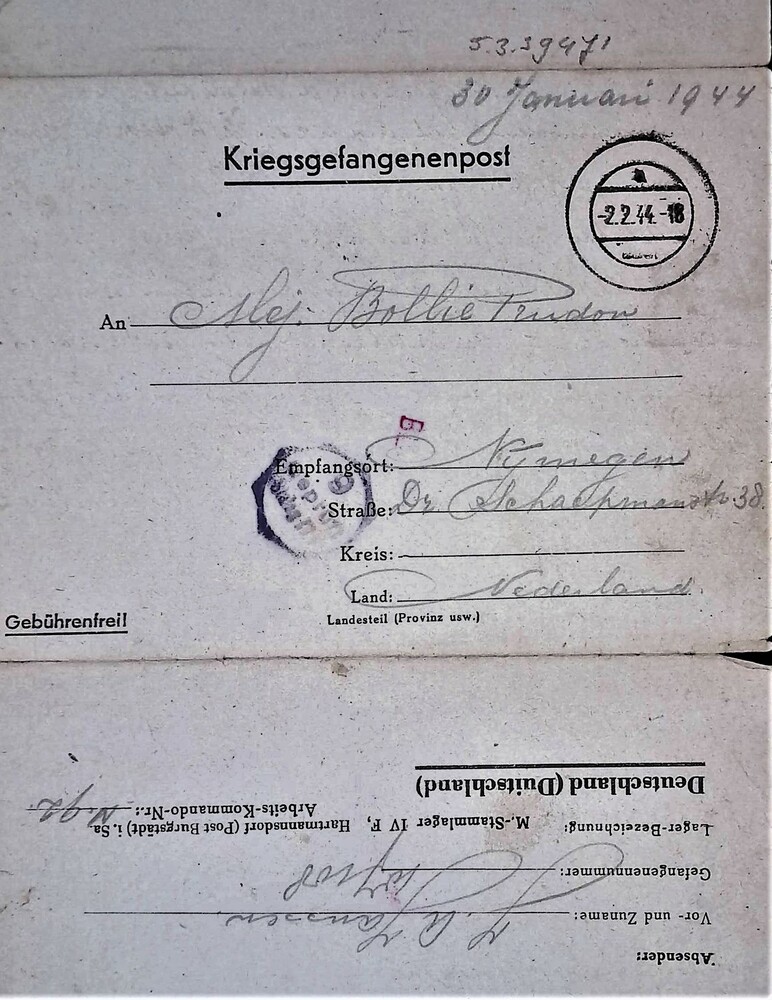 30 Januari 1944
Kriegsgefangenenpost
-2.2.44.-18
An Mej. Bollie Prudon
Empfangsort: Nijmegen
Straße: Dr. Schaepmanstr. 38.
Kreis:
Land: Nederland
Landesteil (Provinz usw.)
Gebührenfrei!
Absender:
Vor- und Zuname: Janssen.
Gefangenennummer:
Lager-Bezeichnung: M.-Stammlager IV F, Hartmannsdorf (Post Burgstädt) i. Sa.
Arbeits-Kommando-Nr.:
Deutschland (Duitschland)